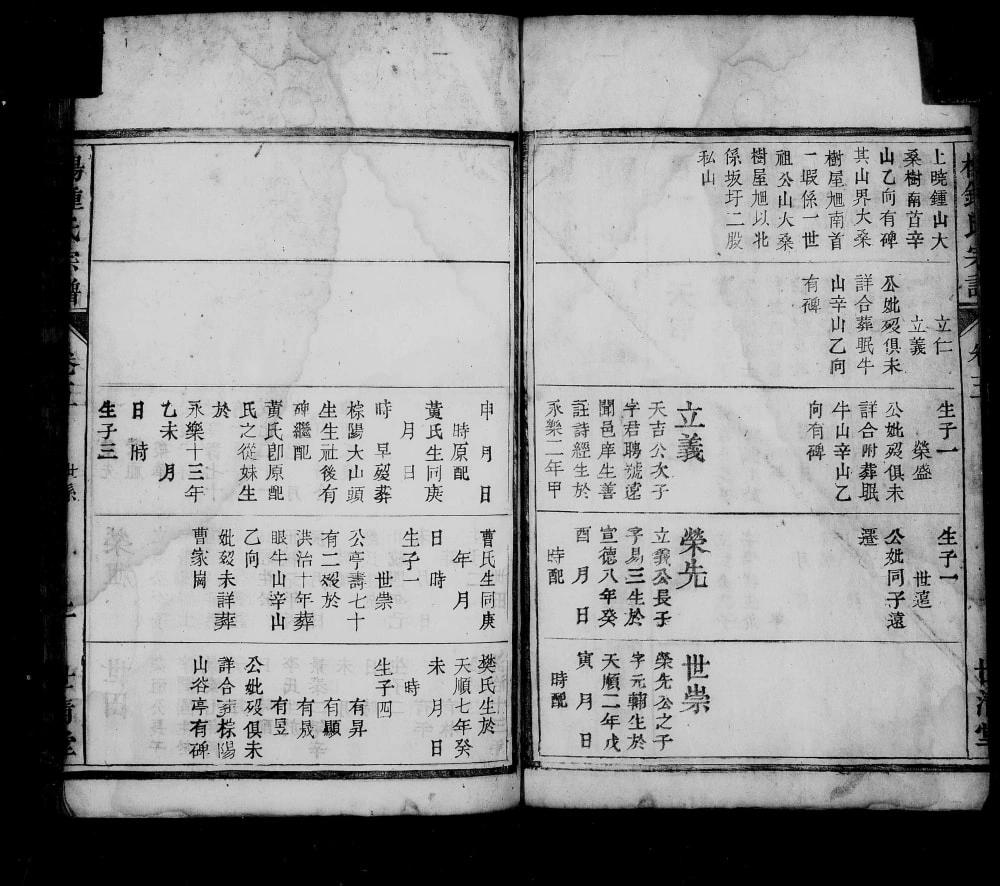 上曉鍾山大
桑樹南首辛
山乙向有碑
其山界大桑
樹屋旭南首
一塅係一世
祖公山大桑
樹屋旭以北
係坂圩二股
私山
立仁
立義
公妣歿俱未
詳合葬眠牛
山辛山乙向
有碑
生子一
榮盛
公妣歿俱未
詳合附葬眠
牛山辛山乙
向有碑
立義
天吉公次子
字君聘號遠
聞邑庠生善
註詩經生於
永樂二年甲
生子一
世遠
公妣同子遠
遷
榮先
立義公長子
字易三生於
宣德八年癸
酉 月 日
時配
世崇
榮先公之子
字元輔生於
天順二年戊
寅 月 日
時配
鍾氏宗譜
卷三
世系
申 月 日
時原配
黃氏生同庚
月 日
時 早歿葬
棕陽大山頭
生生社後有
碑繼配
黃氏卽原配
氏之從妹生
於
永樂十三年
乙未 月
日 時
生子三
曹氏生同庚
年 月
日 時
生子一
世崇
公亭壽七十
有二歿於
洪治十年葬
眼牛山辛山
乙向
妣歿未詳葬
曹家崗
樊氏生於
天順七年癸
未 月 日
時
生子四
有昇
有顯
有晟
有昱
公妣歿俱未
詳合葬棕陽
山谷亭有碑